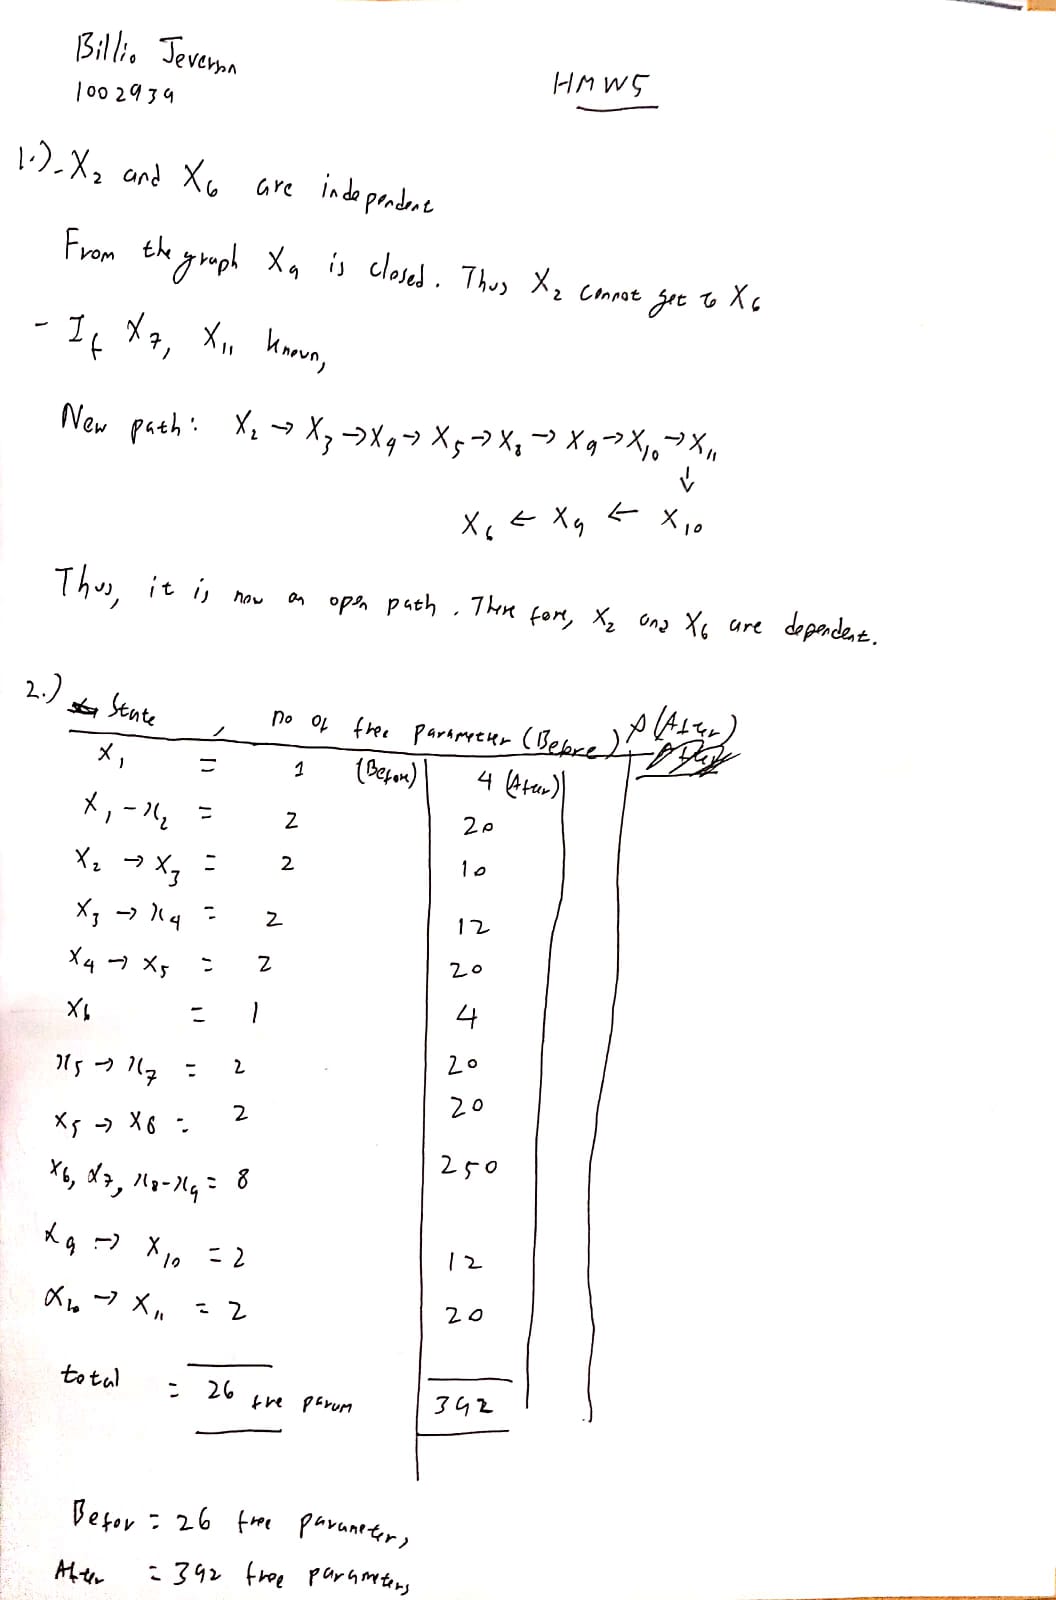 Billio Jeverson
1002939
HMW5
1.) - X2 and X6 are independent
From the graph X9 is closed. Thus X2 cannot get to X6
- If X7, X11 known,
New path: X2 → X3 → X4 → X5 → X8 → X9 → X10 → X11
↓
X6 ← X9 ← X10
Thus, it is now an open path. There fore, X2 and X6 are dependent.
2.) State , no of free parameter (Before) (After)
X1 = 1 (Before) 4 (After)
X1 - X2 = 2 20
X2 → X3 = 2 10
X3 → X4 = 2 12
X4 → X5 = 2 20
X6 = 1 4
X5 → X7 = 2 20
X5 → X8 = 2 20
X6, X7, X8 - X9 = 8 250
X9 → X10 = 2 12
X10 → X11 = 2 20
total = 26 fre param 392
Befor = 26 free parameters
After = 392 free parameters